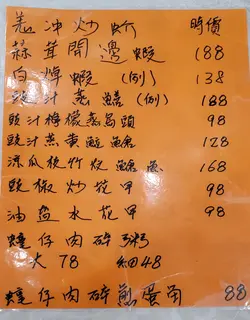 羌沖炒蚧 時價
蒜茸開邊蝦 188
白焯蝦 (例) 138
豉汁蒸鱔 (例) 188
豉汁檸檬蒸烏頭 98
豉汁蒸黄鯡鱼 128
凉瓜枝竹炆鱼 168
豉椒炒花甲 98
油盐水花甲 98
蠔仔肉碎粥
大 78 細48
蠔仔肉碎煎蛋角 88